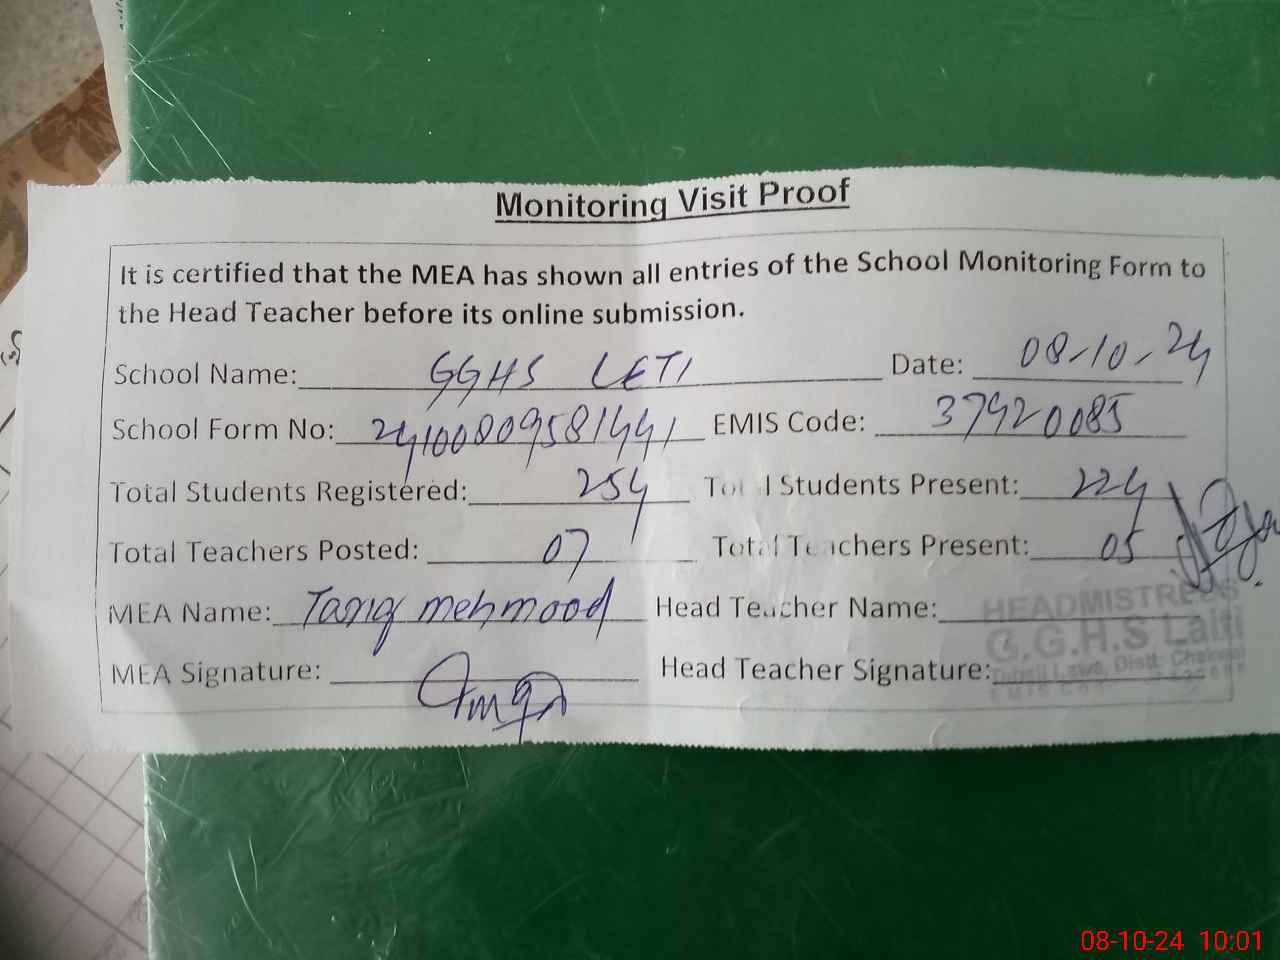 Monitoring Visit Proof
It is certified that the MEA has shown all entries of the School Monitoring Form to
the Head Teacher before its online submission.
School Name: GGHS LETI Date: 08-10-24
School Form No: 24100809581441 EMIS Code: 37920085
Total Students Registered: 254 Total Students Present: 224
Total Teachers Posted: 07 Total Teachers Present: 05
MEA Name: Tariq mehmood Head Teacher Name:
HEADMISTRESS
G.G.H.S Laiti
MEA Signature: Head Teacher Signature:
08-10-24 10:01